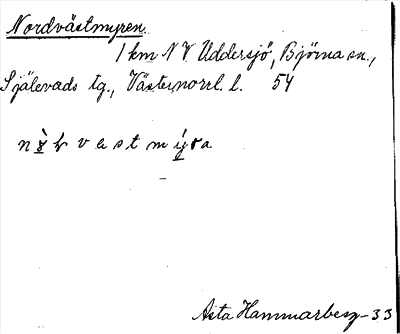 Nordvästmyren.
1 km N V. Uddersjö, Björna sn.,
Själevads tg., Västernorrl. l. 54
v a s t m
Asta Hammarberg-33